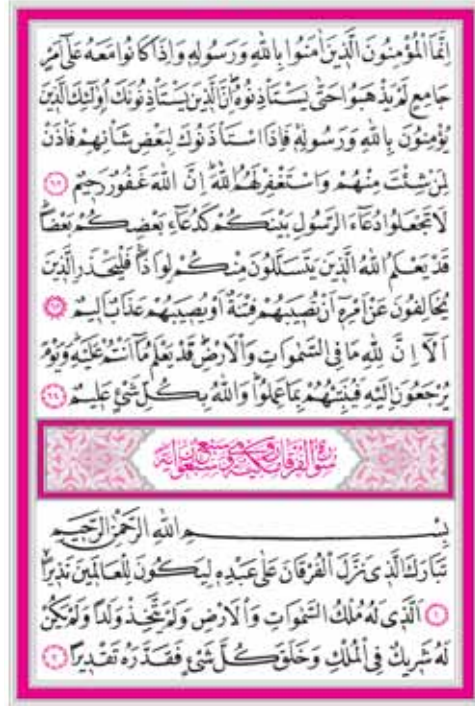 اِنَّمَا الْمُؤْمِنُونَ الَّذٖينَ اٰمَنُوا بِاللّٰهِ وَرَسُولِهٖ وَاِذَا كَانُوا مَعَهُ عَلٰٓى اَمْرٍ
جَامِعٍ لَمْ يَذْهَبُوا حَتّٰى يَسْتَأْذِنُوهُؕ اِنَّ الَّذٖينَ يَسْتَأْذِنُونَكَ اُو۬لٰٓئِكَ الَّذٖينَ
يُؤْمِنُونَ بِاللّٰهِ وَرَسُولِهٖۚ فَاِذَا اسْتَأْذَنُوكَ لِبَعْضِ شَأْنِهِمْ فَأْذَنْ
لِمَنْ شِئْتَ مِنْهُمْ وَاسْتَغْفِرْ لَهُمُ اللّٰهَؕ اِنَّ اللّٰهَ غَفُورٌ رَحٖيمٌ ﴿٦٢﴾
لَا تَجْعَلُوا دُعَٓاءَ الرَّسُولِ بَيْنَكُمْ كَدُعَٓاءِ بَعْضِكُمْ بَعْضاًؕ
قَدْ يَعْلَمُ اللّٰهُ الَّذٖينَ يَتَسَلَّلُونَ مِنْكُمْ لِوَاذاًۚ فَلْيَحْذَرِ الَّذٖينَ
يُخَالِفُونَ عَنْ اَمْرِهٖٓ اَنْ تُصٖيبَهُمْ فِتْنَةٌ اَوْ يُصٖيبَهُمْ عَذَابٌ اَلٖيمٌ ﴿٦٣﴾
اَلَٓا اِنَّ لِلّٰهِ مَا فِي السَّمٰوَاتِ وَالْاَرْضِؕ قَدْ يَعْلَمُ مَٓا اَنْتُمْ عَلَيْهِؕ وَيَوْمَ
يُرْجَعُونَ اِلَيْهِ فَيُنَبِّئُهُمْ بِمَا عَمِلُواؕ وَاللّٰهُ بِكُلِّ شَيْءٍ عَلٖيمٌ ﴿٦٤﴾
سورة الفرقان مكية وهي سبع وسبعون اية
بِسْمِ اللّٰهِ الرَّحْمٰنِ الرَّحٖيمِ
تَبَارَكَ الَّذٖي نَزَّلَ الْفُرْقَانَ عَلٰى عَبْدِهٖ لِيَكُونَ لِلْعَالَمٖينَ نَذٖيراًۙ
﴿١﴾ اَلَّذٖي لَهُ مُلْكُ السَّمٰوَاتِ وَالْاَرْضِ وَلَمْ يَتَّخِذْ وَلَداً وَلَمْ يَكُنْ
لَهُ شَرٖيكٌ فِي الْمُلْكِ وَخَلَقَ كُلَّ شَيْءٍ فَقَدَّرَهُ تَقْدٖيراً ﴿٢﴾